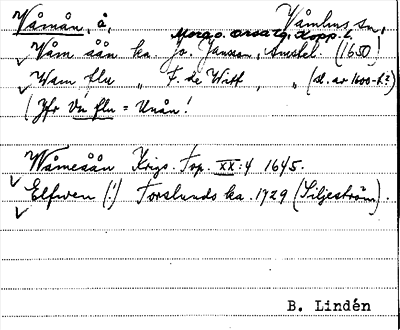 Våmån, å,
Våmhus sn,
Mora o. Orsa tg, Kopp. l.
Wåm åån ka. Jo. Janson, Amstel. (1650)!
Wam flu " F. de Witt, " (sl. av 1600-t.?)
(Jfr Vn flu = Unån!
Wåmeåån Krigs. Top. XX:4 1645.
Elfwen (!) Forslunds ka. 1729 (Siljeström).
B. Lindén